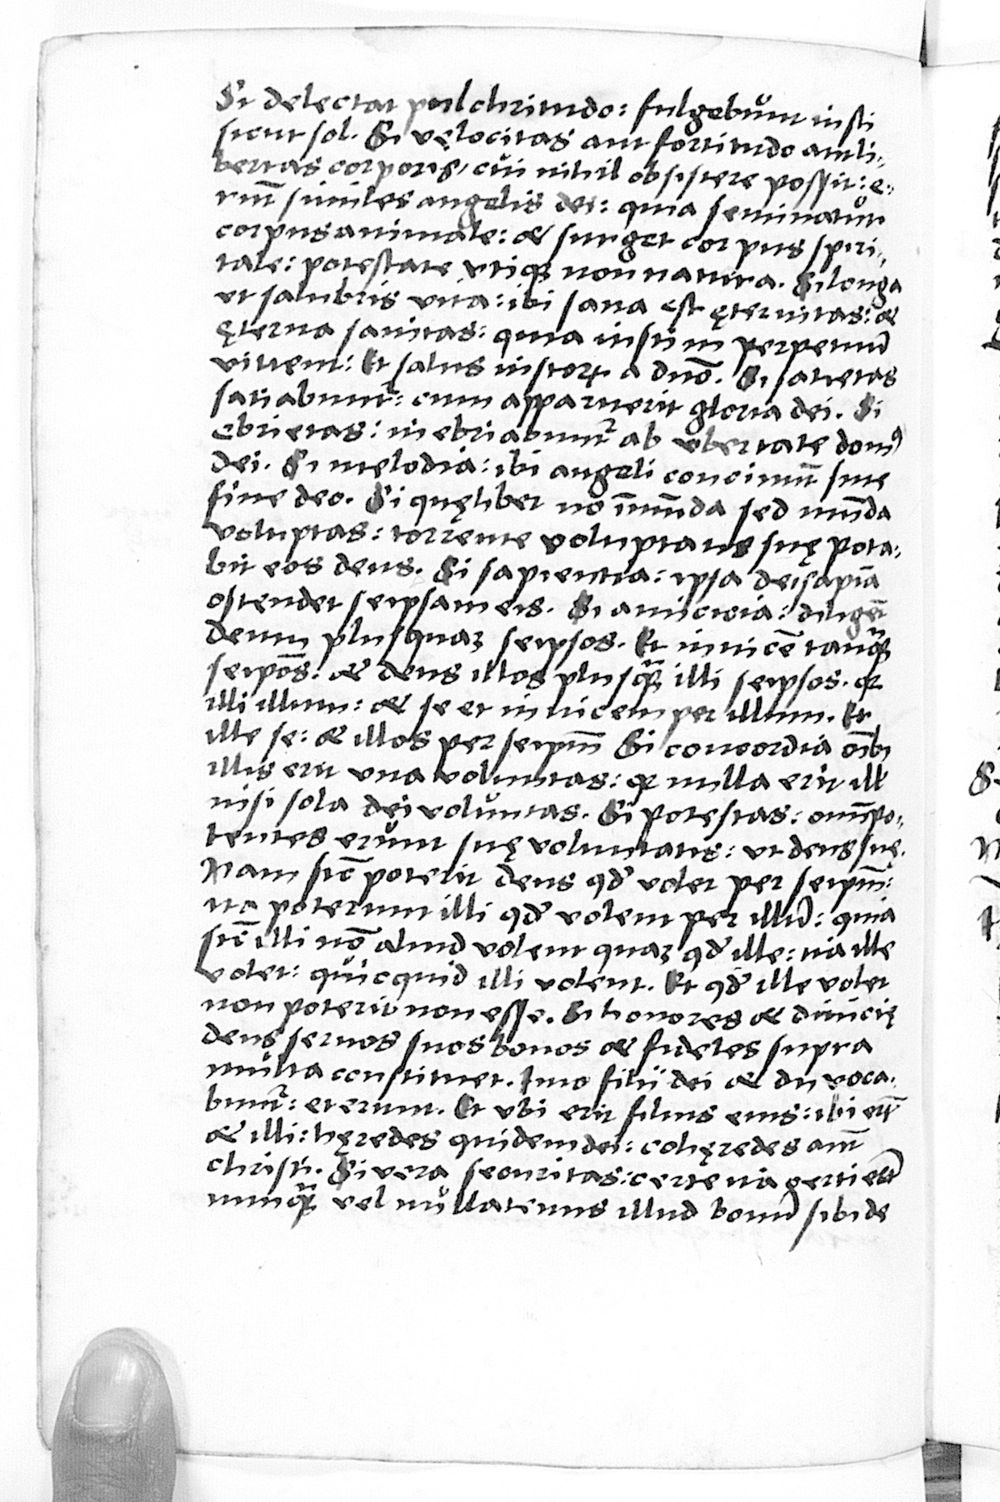 Si delectat pulchritudo: fulgebunt iusti
sicut sol. Si vęlocitas aut fortitudo aut li-
bertas corporis, cui nihil obsistere possit: e-
rūt similes angelis dei: quia seminatur
corpus animale: & surget corpus spiri-
tale: potestate vtiqꝫ non natura. Si longa
et salubris vita: ibi sana est ęternitas: &
ęterna sanitas: quia iusti in perpetuū
viuent: Et salus iustorꝝ a dnō. Si satietas
satiabunt᷑: cum apparuerit gloria dei. Si
ebrietas: inebriabunt᷑ ab vbertate domꝰ
dei. Si melodia: ibi angeli concinūt sine
fine deo. Si quęlibet nō īmūda sed mūda
voluptas: torrente voluptatis suę pota-
bit eos deus. Si sapientia: ipsa dei sapiā
ostendet seipsam eis. Si amicicia: diligēt
deum plusquaꝫ seipsos. Et inuicē tanqꝫ̄
seipōs: & deus illos plusqꝫ̄ illi seipsos. qꝛ
illi illum: & se et inuicem per illum. Et
ille se: & illos per seipm̄ Si concordia oīb
illis erit vna voluntas: qꝛ nulla erit ill
nisi sola dei voluntas. Si potestas: omīpo-
tentes erunt suę voluntatis: vt deus suę.
Nam sic̄ poterit deus qđ volet per seipm̄:
ita poterunt illi qđ volent per illū: quia
sic̄ illi nō aliud volent quaꝫ qđ ille: ita ille
volet: quicquid illi volent. Et qđ ille volet
non poterit non esse. Si honores & diuicię
deus seruos suos bonos & fideles supra
multa constituet. Imo filii dei & dii voca-
bunt᷑: et erunt. Et vbi erit filius eius: ibi erūt
& illi: hęredes quidem dei: cohęredes aūt
christi. Si vera securitas: certe ita certi erūt
nunqꝫ̄ vel nullatenus illud bonū sibi de